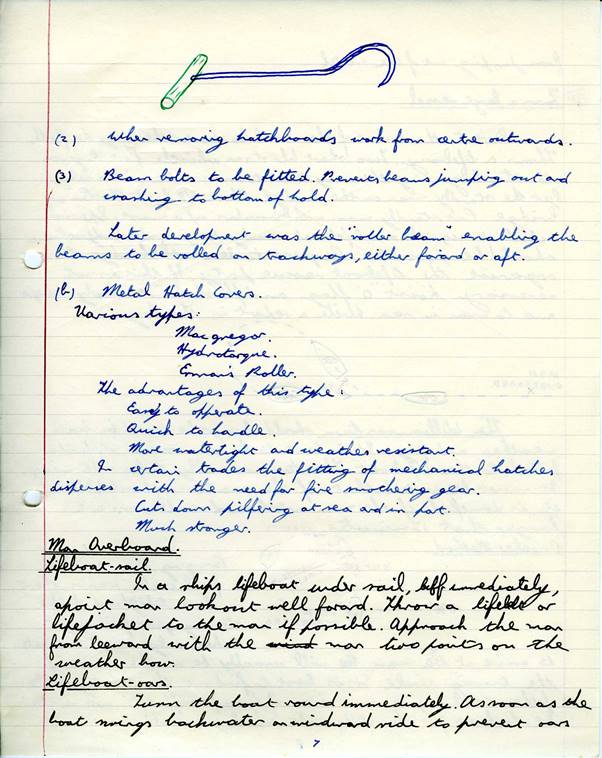 (2) When removing hatchboards work from centre outwards.
(3) Beam bolts to be fitted. Prevents beams jumping out and
crashing to bottom of hold.
Later development was the "roller beam" enabling the
beams to be rolled on trackways, either forard or aft.
(b) Metal Hatch Covers.
Various types:
Macgregor.
Hydrotorque.
Ermans Roller.
The advantages of this type:
Easy to opperate.
Quick to handle.
More watertight and weather resistant.
In certain trades the fitting of mechanical hatches
dispenses with the need for fire smothering gear.
Cuts down pilfering at sea and in port.
Much stronger.
Man Overboard.
Lifeboat-sail.
In a ships lifeboat under sail, luff immediately,
apoint man lookout well forard. Throw a or
lifejacket to the man if possible. Approach the man
from leeward with the man two points on the
weather bow.
Lifeboat-oars.
Turn the boat round immediately. As soon as the
boat swings backwater on windward side to prevent oars
7